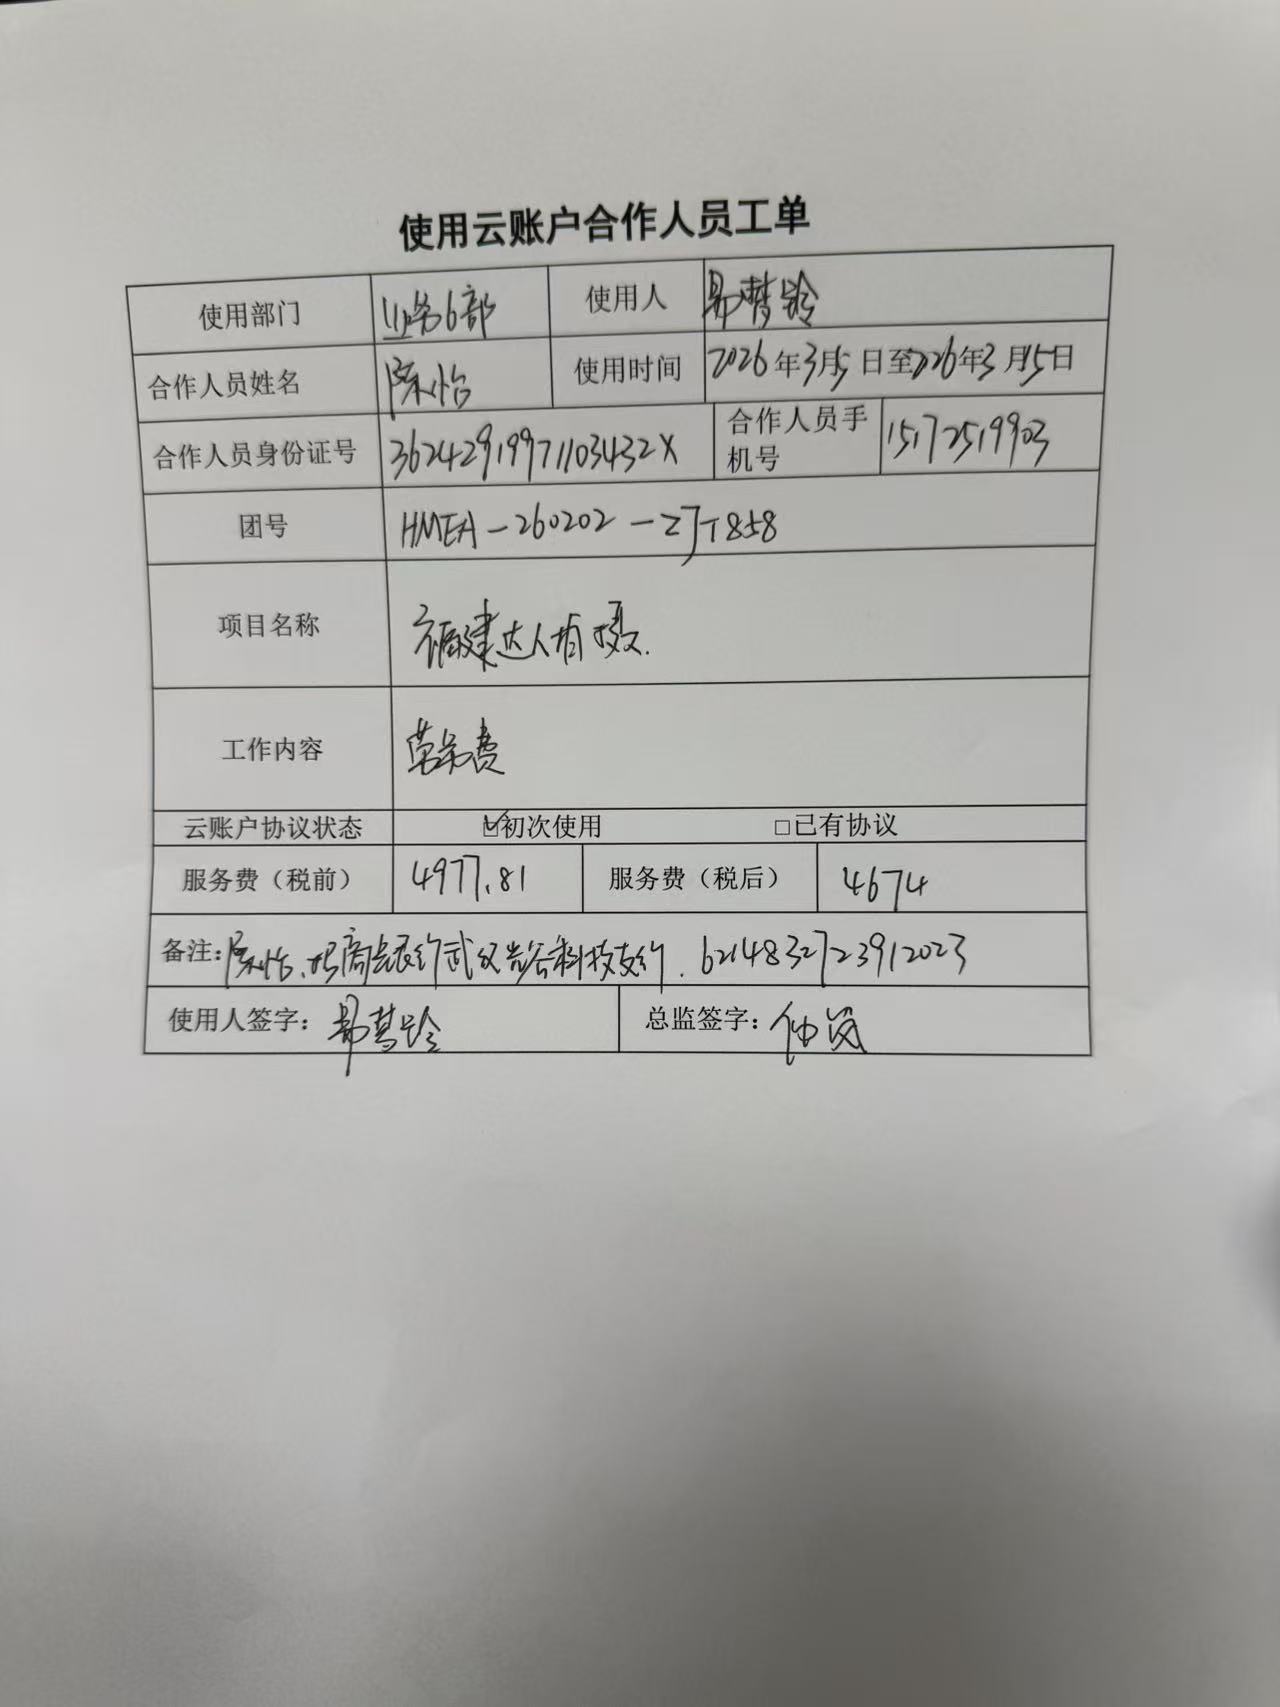 使用云账户合作人员工单
使用部门 业务6部 使用人 易梦玲
合作人员姓名 陈怡 使用时间 2026年3月5日至2026年3月15日
合作人员身份证号 36242919971103432X 合作人员手机号 15172519903
团号 HMEA-260202-ZJT858
项目名称 福建达人拍摄.
工作内容 劳务费
云账户协议状态 ☑初次使用 □已有协议
服务费（税前） 4977.81 服务费（税后） 4674
备注：陈怡、招商银行武汉光谷科技支行. 6214832723912023
使用人签字： 总监签字：